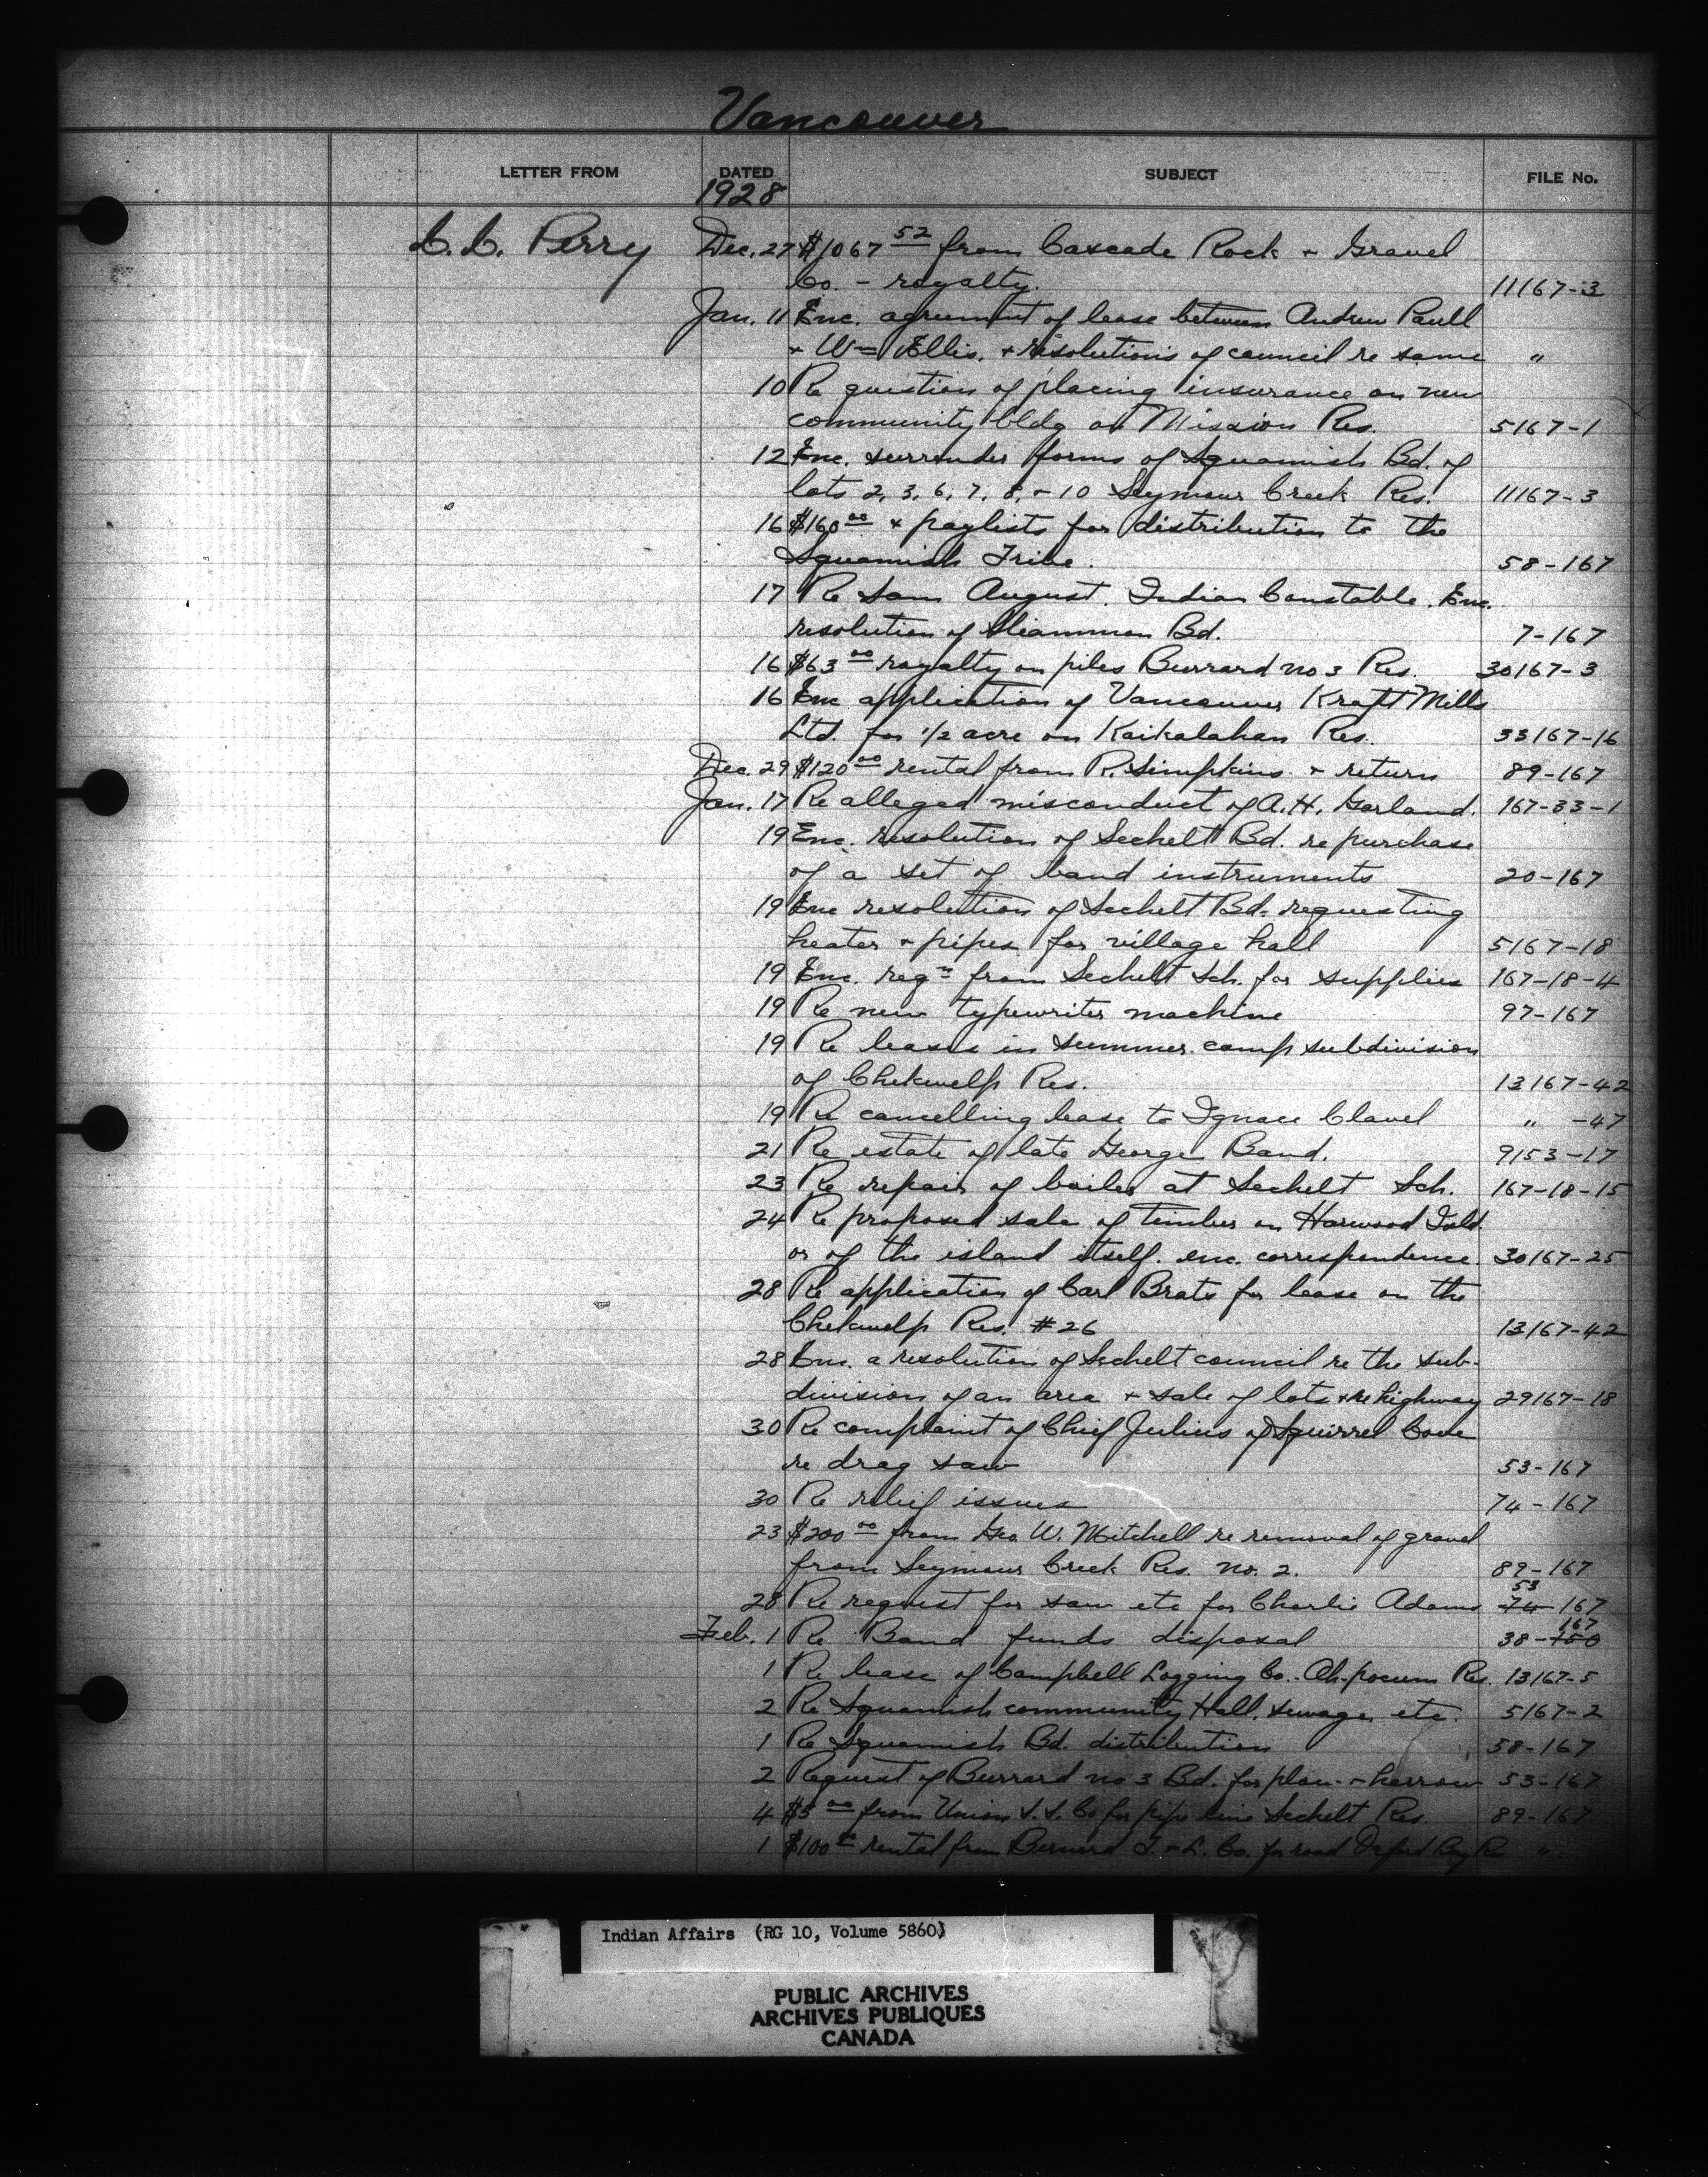 Vancouver
LETTER FROM DATED SUBJECT FILE No.
1928
C.C. Perry Dec. 27 $1067 52 from Cascade Rock + Gravel
Co. - royalty. 11167-3
Jan. 11 Enc. agreement of lease between Andrew Paull
+ Wm Ellis. + resolutions of council re same "
10 Re question of placing insurance on new
community bldg on Mission Res. 5167-1
12 Enc. surrender forms of Squamish Bd. of
lots 2, 3, 6, 7, 8, + 10 Seymour Creek Res. 11167-3
16 $160 00 + paylists for distribution to the
Squamish Tribe. 58-167
17 Re Sam August. Indian Constable. Enc.
resolution of Sliammon Bd. 7-167
16 $63 00 royalty on piles Burrard no 3 Res. 30167-3
16 Enc application of Vancouver Kraft Mills
Ltd. for 1/2 acre on Kaikalahan Res. 33167-16
Dec. 29 $120 00 rental from R. Simpkins + return 89-167
Jan. 17 Re alleged misconduct of A.H. Garland. 167-33-1
19 Enc. resolution of Sechelt Bd. re purchase
of a set of band instruments 20-167
19 Enc resolution of Sechelt Bd. requesting
heater + pipes for village hall 5167-18
19 Enc. reqn from Sechelt Sch. for supplies 167-18-4
19 Re new typewriter machine 97-167
19 Re leases in summer camp subdivision
of Chekwelp Res. 13167-42
19 Re cancelling lease to Ignace Clavel " -47
21 Re estate of late George Band. 9153-17
23 Re repair of boiler at Sechelt Sch. 167-18-15
24 Re proposed sale of timber on Harwood Isld.
or of the island itself. enc. correspondence. 30167-25
28 Re application of Carl Brats for lease on the
Chekwelp Res. #26 13167-42
28 Enc. a resolution of Sechelt council re the sub-
division of an area + sale of lots + re highway 29167-18
30 Re complaint of Chief Julius of Squirrel Cove
re drag saw 53-167
30 Re relief issues 74-167
23 $200 00 from Geo. W. Mitchell re removal of gravel
from Seymour Creek Res. no. 2. 89-167
53
28 Re request for saw etc for Charlie Adams 74-167
167
Feb. 1 Re Band funds disposal 38-150
1 Re lease of Campbell Logging Co. Ah-pocum Res. 13167-5
2 Re Squamish community Hall, sewage, etc. 5167-2
1 Re Squamish Bd. distribution 58-167
2 Request of Burrard no 3 Bd. for plow + harrow 53-167
4 $5 00 from Union S.S. Co for pipe line Sechelt Res. 89-167
1 $100 00 rental from Bernard T. + L. Co. for road Orford Bay Re "
Indian Affairs (RG 10, Volume 5860)
PUBLIC ARCHIVES
ARCHIVES PUBLIQUES
CANADA